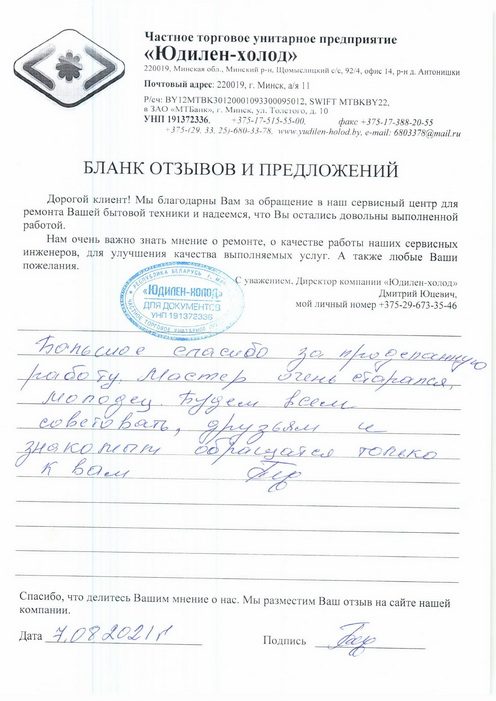 Частное торговое унитарное предприятие
«Юдилен-холод»
220019, Минская обл., Минский р-н, Щомыслицкий с/с, 92/4, офис 14, р-н д. Антонишки
Почтовый адрес: 220019, г. Минск, а/я 11
Р/сч: BY12MTBK30120001093300095012, SWIFT MTBKBY22,
в ЗАО «МТБанк», г. Минск, ул. Толстого, д. 10
УНП 191372336, +375-17-515-55-00, факс +375-17-388-20-55
+375-(29, 33, 25)-680-33-78, www.yudilen-holod.by, e-mail: 6803378@mail.ru
БЛАНК ОТЗЫВОВ И ПРЕДЛОЖЕНИЙ
Дорогой клиент! Мы благодарны Вам за обращение в наш сервисный центр для
ремонта Вашей бытовой техники и надеемся, что Вы остались довольны выполненной
работой.
Нам очень важно знать мнение о ремонте, о качестве работы наших сервисных
инженеров, для улучшения качества выполняемых услуг. А также любые Ваши
пожелания.
С уважением, Директор компании «Юдилен-холод»
Дмитрий Юцевич,
мой личный номер +375-29-673-35-46
РЕСПУБЛИКА БЕЛАРУСЬ
«ЮДИЛЕН-ХОЛОД»
ДЛЯ ДОКУМЕНТОВ
УНП 191372336
ЧАСТНОЕ ТОРГОВОЕ УНИТАРНОЕ
Большое спасибо за проделанную
работу. Мастер очень старался,
молодец. Будем всем
советовать, друзьям и
знакомым обращатся только
к вам
Спасибо, что делитесь Вашим мнение о нас. Мы разместим Ваш отзыв на сайте нашей
компании.
Дата 7.08.2021г Подпись